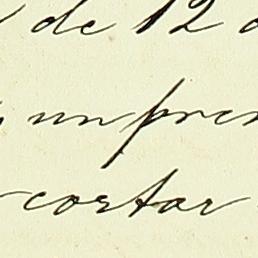 de 12
un pren
cortar